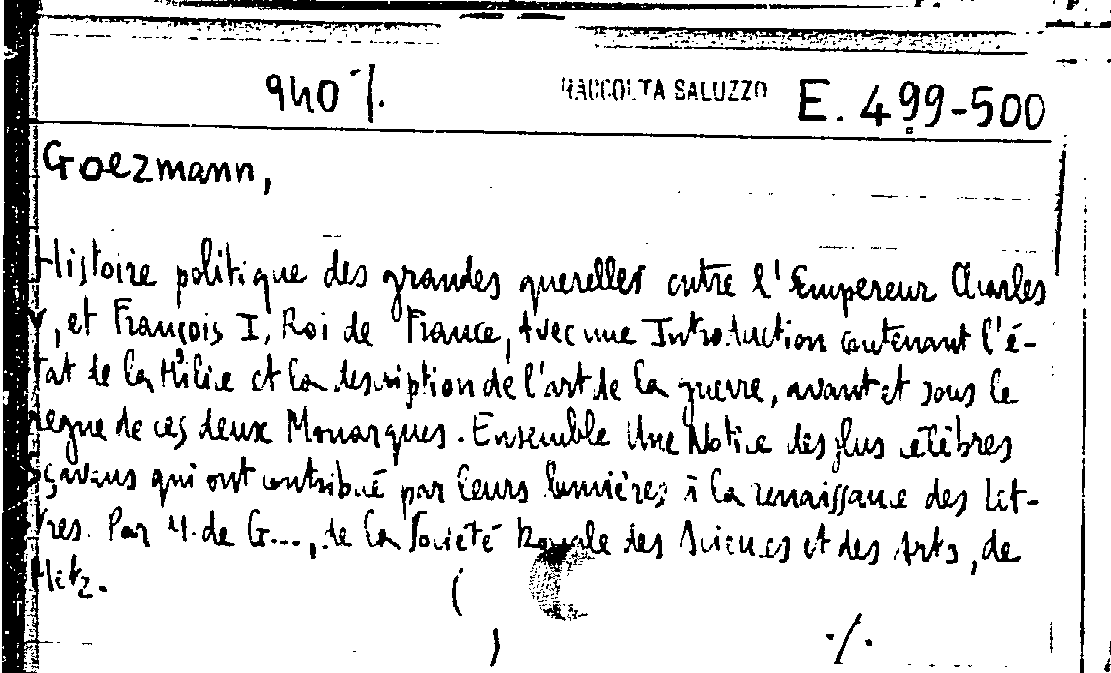 940 ·/. RACCOLTA SALUZZO E. 499-500
Goezmann,
Histoire politique des grandes querelles entre l'Empereur Charles
V, et François I, Roi de France, avec une Introduction contenant l'é-
tat de la Milice et la description de l'art de la guerre, avant et sous le
regne de ces deux Monarques. Ensemble Une Notice des plus célèbres
sçavans qui ont contribué par leurs lumières à la renaissance des Let-
tres. Par M. de G..., de la Societé Royale des Sciences et des Arts, de
Metz.
(
) ·/.